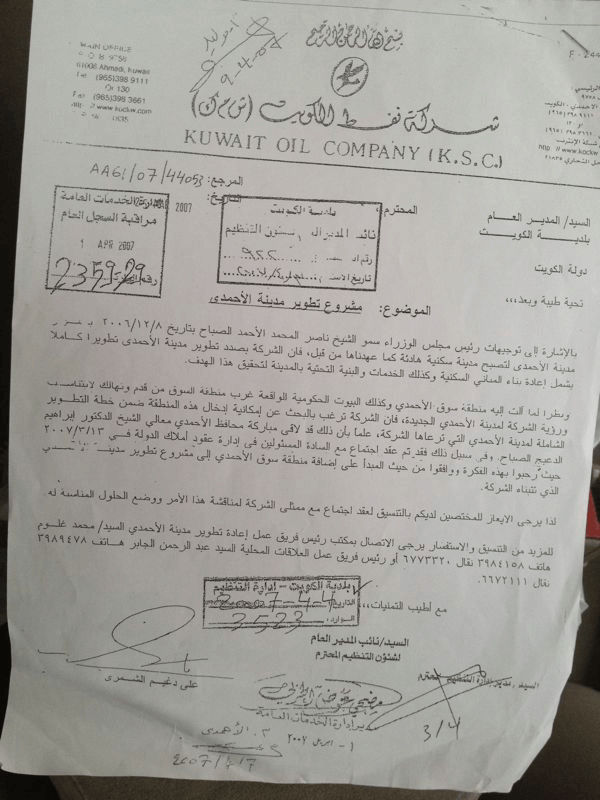 بسم الله الرحمن الرحيم
F - 244
MAIN OFFICE
61008 Ahmadi, Kuwait
Tel (965)398 9111
Or 130
Fax (965)398 3661
http://www.kockw.com
شركة نفط الكويت (ش.م.ك)
KUWAIT OIL COMPANY (K.S.C.)
المرجع: AA61/07/44053
التاريخ: 2007
إدارة الخدمات العامة
مراقبة السجل العام
1 APR 2007
235929
بلدية الكويت
نائب المدير العام لشئون التنظيم
السيد/ المدير العام المحترم،
بلدية الكويت
دولة الكويت
تحية طيبة وبعد،،،
الموضوع: مشروع تطوير مدينة الأحمدي
بالإشارة إلى توجيهات رئيس مجلس الوزراء سمو الشيخ ناصر المحمد الأحمد الصباح بتاريخ ٢٠٠٦/١٢/٨
مدينة الأحمدي لتصبح مدينة سكنية هادئة كما عهدناها من قبل، فان الشركة بصدد تطوير مدينة الأحمدى تطويرا كاملا
يشمل إعادة بناء المباني السكنية وكذلك الخدمات والبنية التحتية بالمدينة لتحقيق هذا الهدف.
ونظرا لما آلت إليه منطقة سوق الأحمدي وكذلك البيوت الحكومية الواقعة غرب منطقة السوق من قدم وتهالك لايتناسب
ورؤية الشركة لمدينة الأحمدي الجديدة، فان الشركة ترغب بالبحث عن إمكانية إدخال هذه المنطقة ضمن خطة التطوير
الشاملة لمدينة الأحمدي التي ترعاها الشركة، علماً بأن ذلك قد لاقى مباركة محافظ الأحمدي معالي الشيخ الدكتور إبراهيم
الدعيج الصباح. وفى سبيل ذلك فقد تم عقد اجتماع مع السادة المسئولين فى إدارة عقود أملاك الدولة فى ٢٠٠٧/٣/١٣
حيث رحبوا بهذه الفكرة ووافقوا من حيث المبدأ على إضافة منطقة سوق الأحمدي إلى مشروع تطوير مدينة
الذي تتبناه الشركة.
لذا يرجى الايعاز للمختصين لديكم بالتنسيق لعقد اجتماع مع ممثلى الشركة لمناقشة هذا الأمر ووضع الحلول المناسبة له.
للمزيد من التنسيق والاستفسار يرجى الاتصال بمكتب رئيس فريق عمل إعادة تطوير مدينة الأحمدي السيد/ محمد غلوم
هاتف ٣٩٨٤١٥٨ نقال ٦٧٧٣٣٢٠ أو رئيس فريق عمل العلاقات المحلية السيد عبد الرحمن الجابر هاتف ٣٩٨٩٤٧٨
نقال ٦٦٧٢١١١.
مع أطيب التمنيات،،،
بلدية الكويت - إدارة التنظيم
التاريخ: 2007-4-4
الوارد: 3523
السيد/ نائب المدير العام
لشئون التنظيم المحترم
على دغيم الشمرى
السيد/ مدير إدارة التنظيم المحترم
3/4
مدير إدارة الخدمات العامة
١ - ابريل ٢٠٠٧
م. الأحمدى